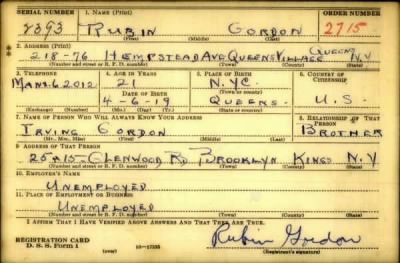 SERIAL NUMBER 1. NAME (Print) ORDER NUMBER
2393 RUBIN GORDON 2715
(First) (Middle) (Last)
2. ADDRESS (Print)
218-76 HEMPSTEAD AVE QUEENS VILLAGE QUEENS N.Y
(Number and street or R. F. D. number) (Town) (County) (State)
3. TELEPHONE 4. AGE IN YEARS 5. PLACE OF BIRTH 6. COUNTRY OF CITIZENSHIP
21 N.Y.C.
6 2012 DATE OF BIRTH (Town or county)
4-6-19 QUEENS U.S.
(Exchange) (Number) (Mo.) (Day) (Yr.) (State or country)
7. NAME OF PERSON WHO WILL ALWAYS KNOW YOUR ADDRESS 8. RELATIONSHIP OF THAT PERSON
IRVING GORDON BROTHER
(Mr., Mrs., Miss) (First) (Middle) (Last)
9. ADDRESS OF THAT PERSON
GLENWOOD RD BROOKLYN KINGS N.Y
(Number and street or R. F. D. number) (Town) (County) (State)
10. EMPLOYER'S NAME
UNEMPLOYED
11. PLACE OF EMPLOYMENT OR BUSINESS
UNEMPLOYED
(Number and street or R. F. D. number) (Town) (County) (State)
I AFFIRM THAT I HAVE VERIFIED ABOVE ANSWERS AND THAT THEY ARE TRUE.
REGISTRATION CARD
D. S. S. Form 1 16—17105 Rubin Gordon
(Registrant's signature)